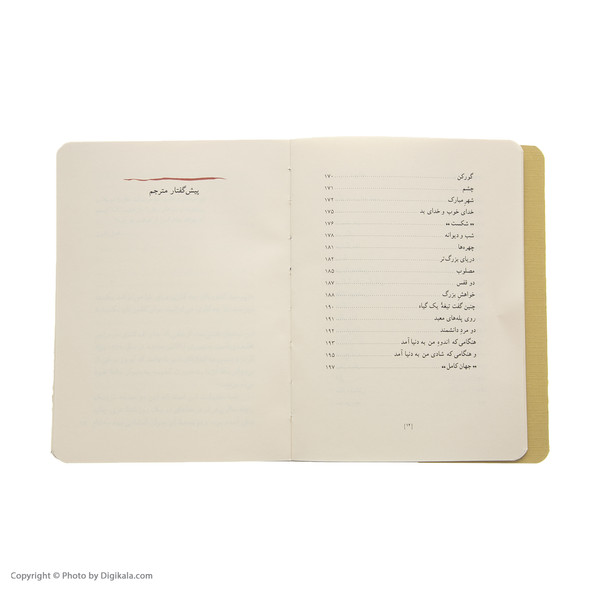 گورکن ۱۷۰
چشم ۱۷۱
شهر مبارک ۱۷۲
خدای خوب و خدای بد ۱۷۵
** شکست ** ۱۷۶
شب و دیوانه ۱۷۸
چهره‌ها ۱۸۱
دریای بزرگ‌تر ۱۸۲
مصلوب ۱۸۵
دو قفس ۱۸۷
خواهش بزرگ ۱۸۸
چنین گفت تیغهٔ یک گیاه ۱۹۰
روی پله‌های معبد ۱۹۱
دو مرد دانشمند ۱۹۲
هنگامی که اندوه من به دنیا آمد ۱۹۳
و هنگامی که شادی من به دنیا آمد ۱۹۵
** جهان کامل ** ۱۹۷
[۱۲]
پیش‌گفتار مترجم
Copyright © Photo by Digikala.com